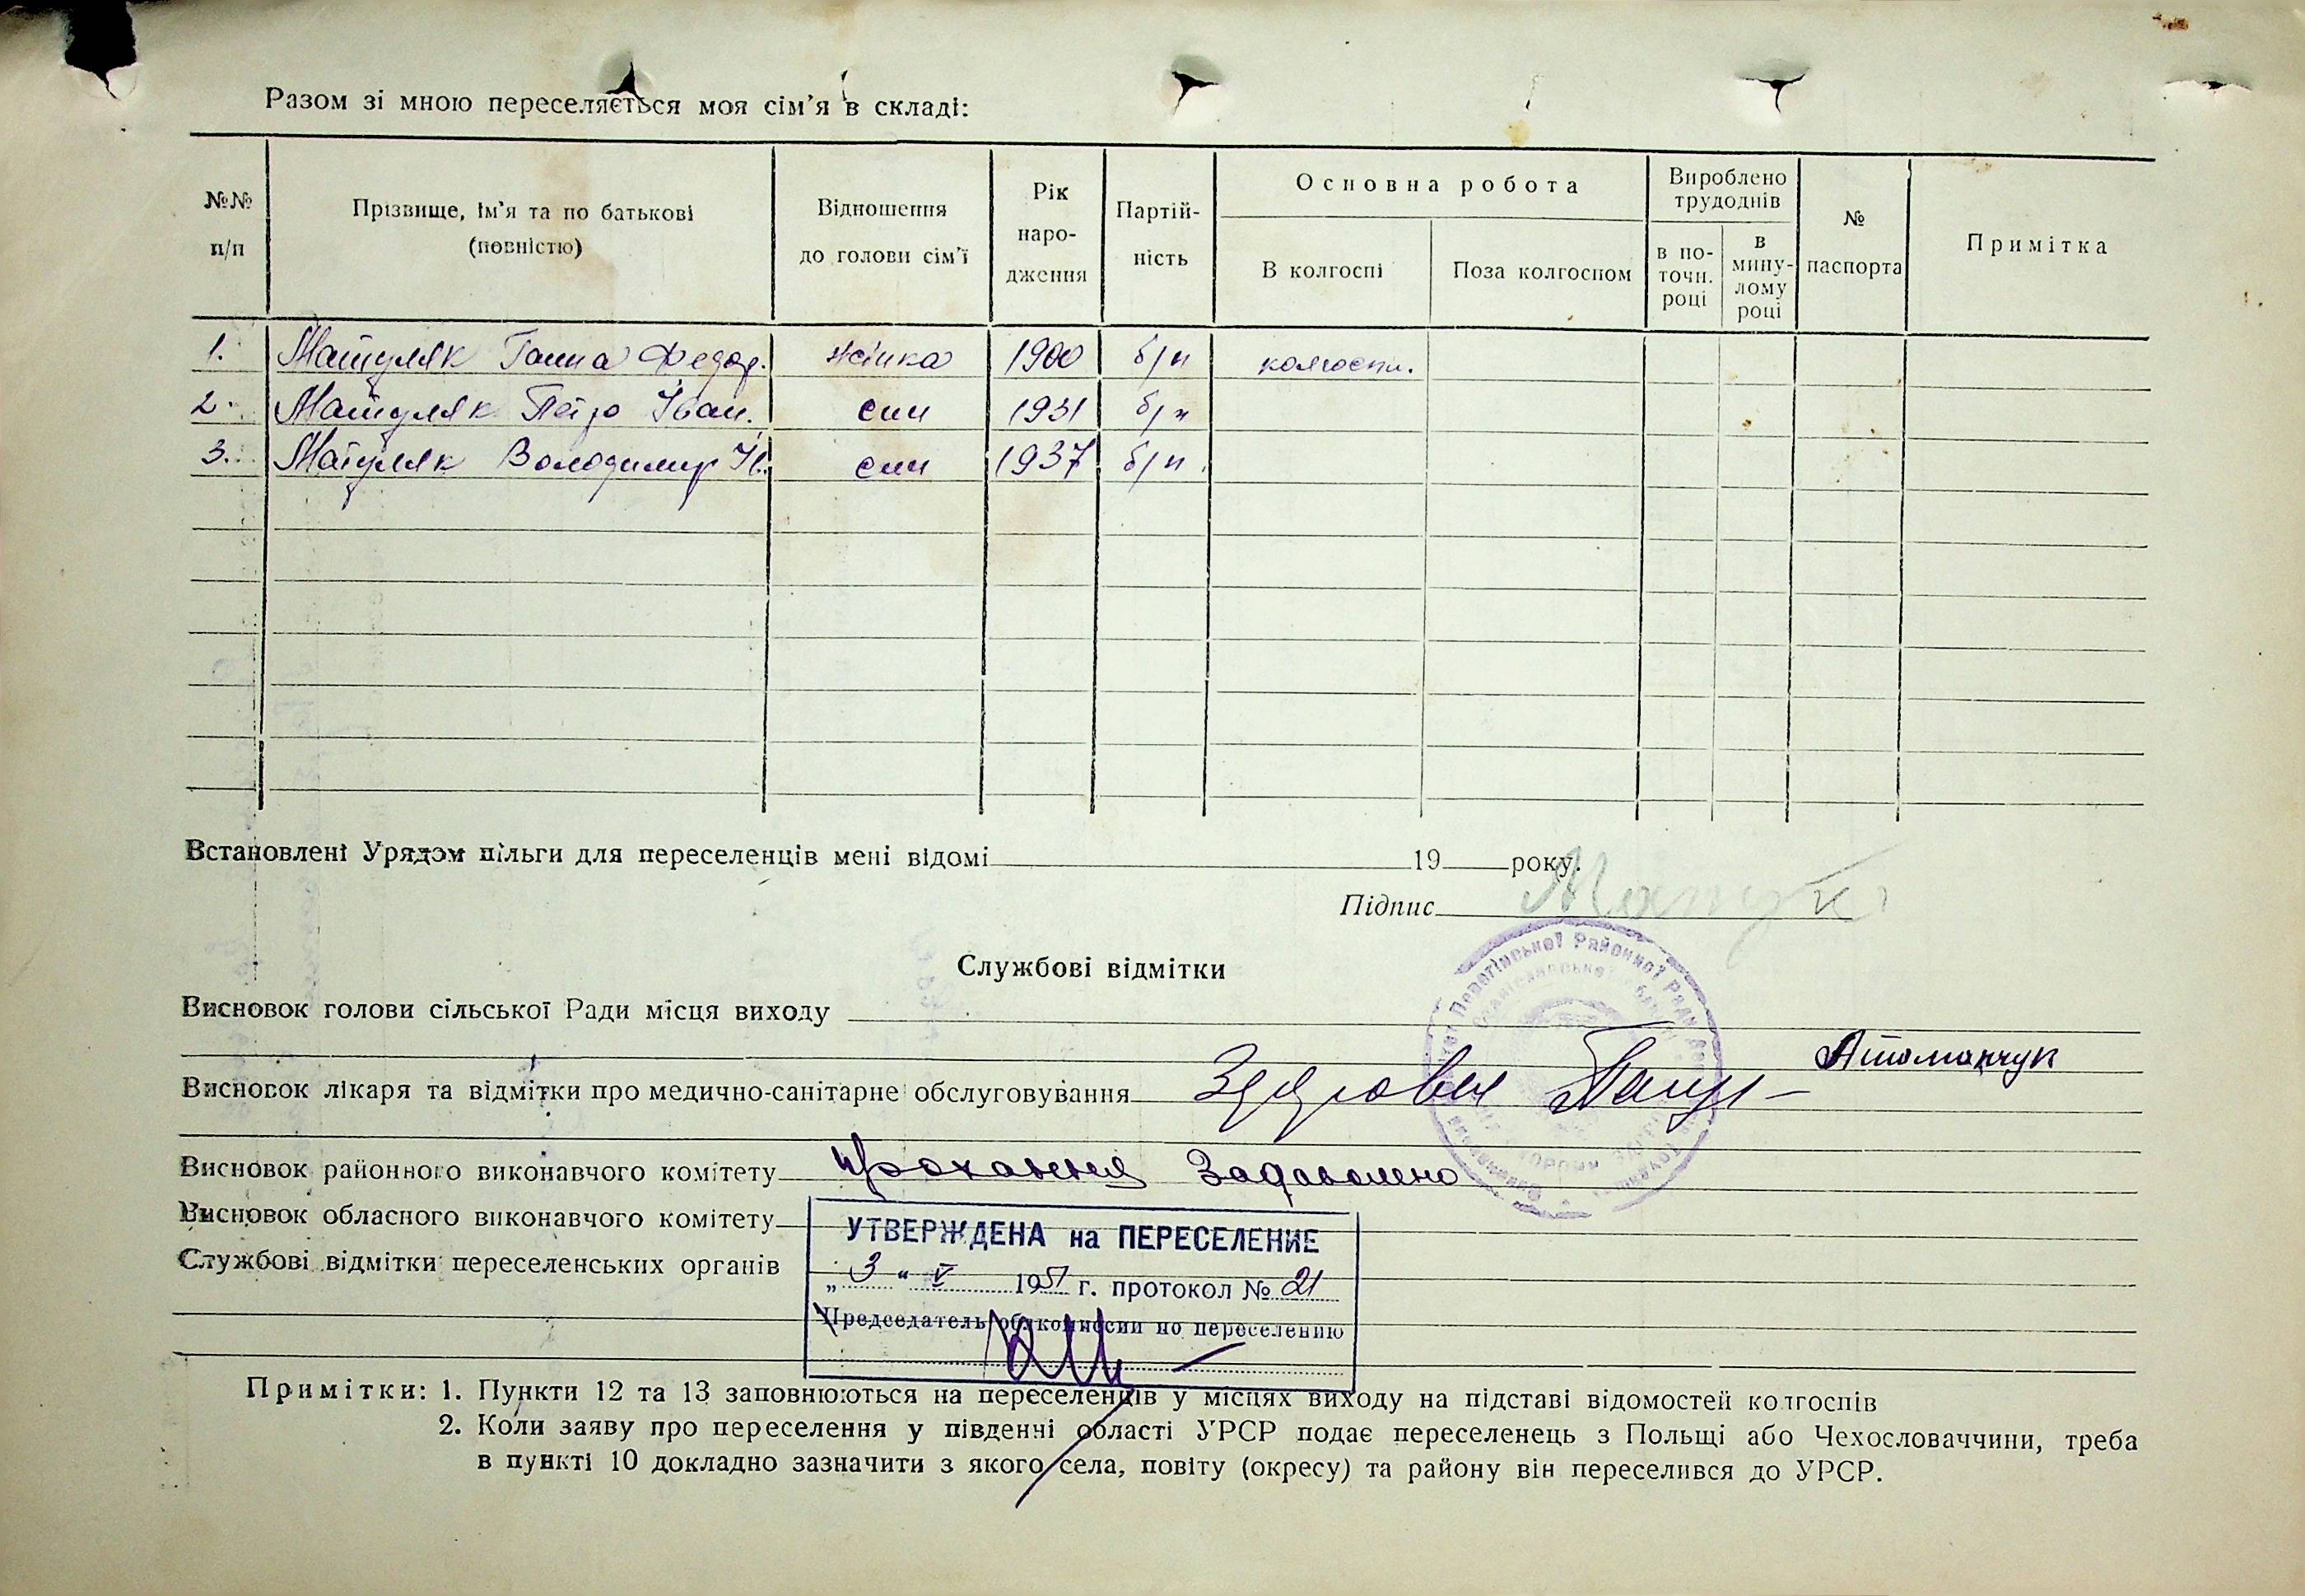 Разом зі мною переселяється моя сім'я в складі:
№№ п/п
Прізвище, ім'я та по батькові (повністю)
Відношення до голови сім'ї
Рік народження
Партійність
Основна робота
В колгоспі
Поза колгоспом
Вироблено трудоднів
в поточн. році
в минулому році
№ паспорта
Примітка
1. Матуляк Ганна Федор. жінка 1900 б/п колгосп.
2. Матуляк Петро Іван. син 1931 б/п
3. Матуляк Володимир Ів. син 1937 б/п
Встановлені Урядом пільги для переселенців мені відомі 19 року.
Підпис
Службові відмітки
Висновок голови сільської Ради місця виходу
Атаманчук
Висновок лікаря та відмітки про медично-санітарне обслуговування Здорова
Висновок районного виконавчого комітету прохання Задоволено
Висновок обласного виконавчого комітету
УТВЕРЖДЕНА на ПЕРЕСЕЛЕНИЕ
Службові відмітки переселенських органів
„3“ V 1951 г. протокол № 21
Председатель облкомиссии по переселению
Примітки: 1. Пункти 12 та 13 заповнюються на переселенців у місцях виходу на підставі відомостей колгоспів
2. Коли заяву про переселення у південні області УРСР подає переселенець з Польщі або Чехословаччини, треба
в пункті 10 докладно зазначити з якого села, повіту (окресу) та району він переселився до УРСР.